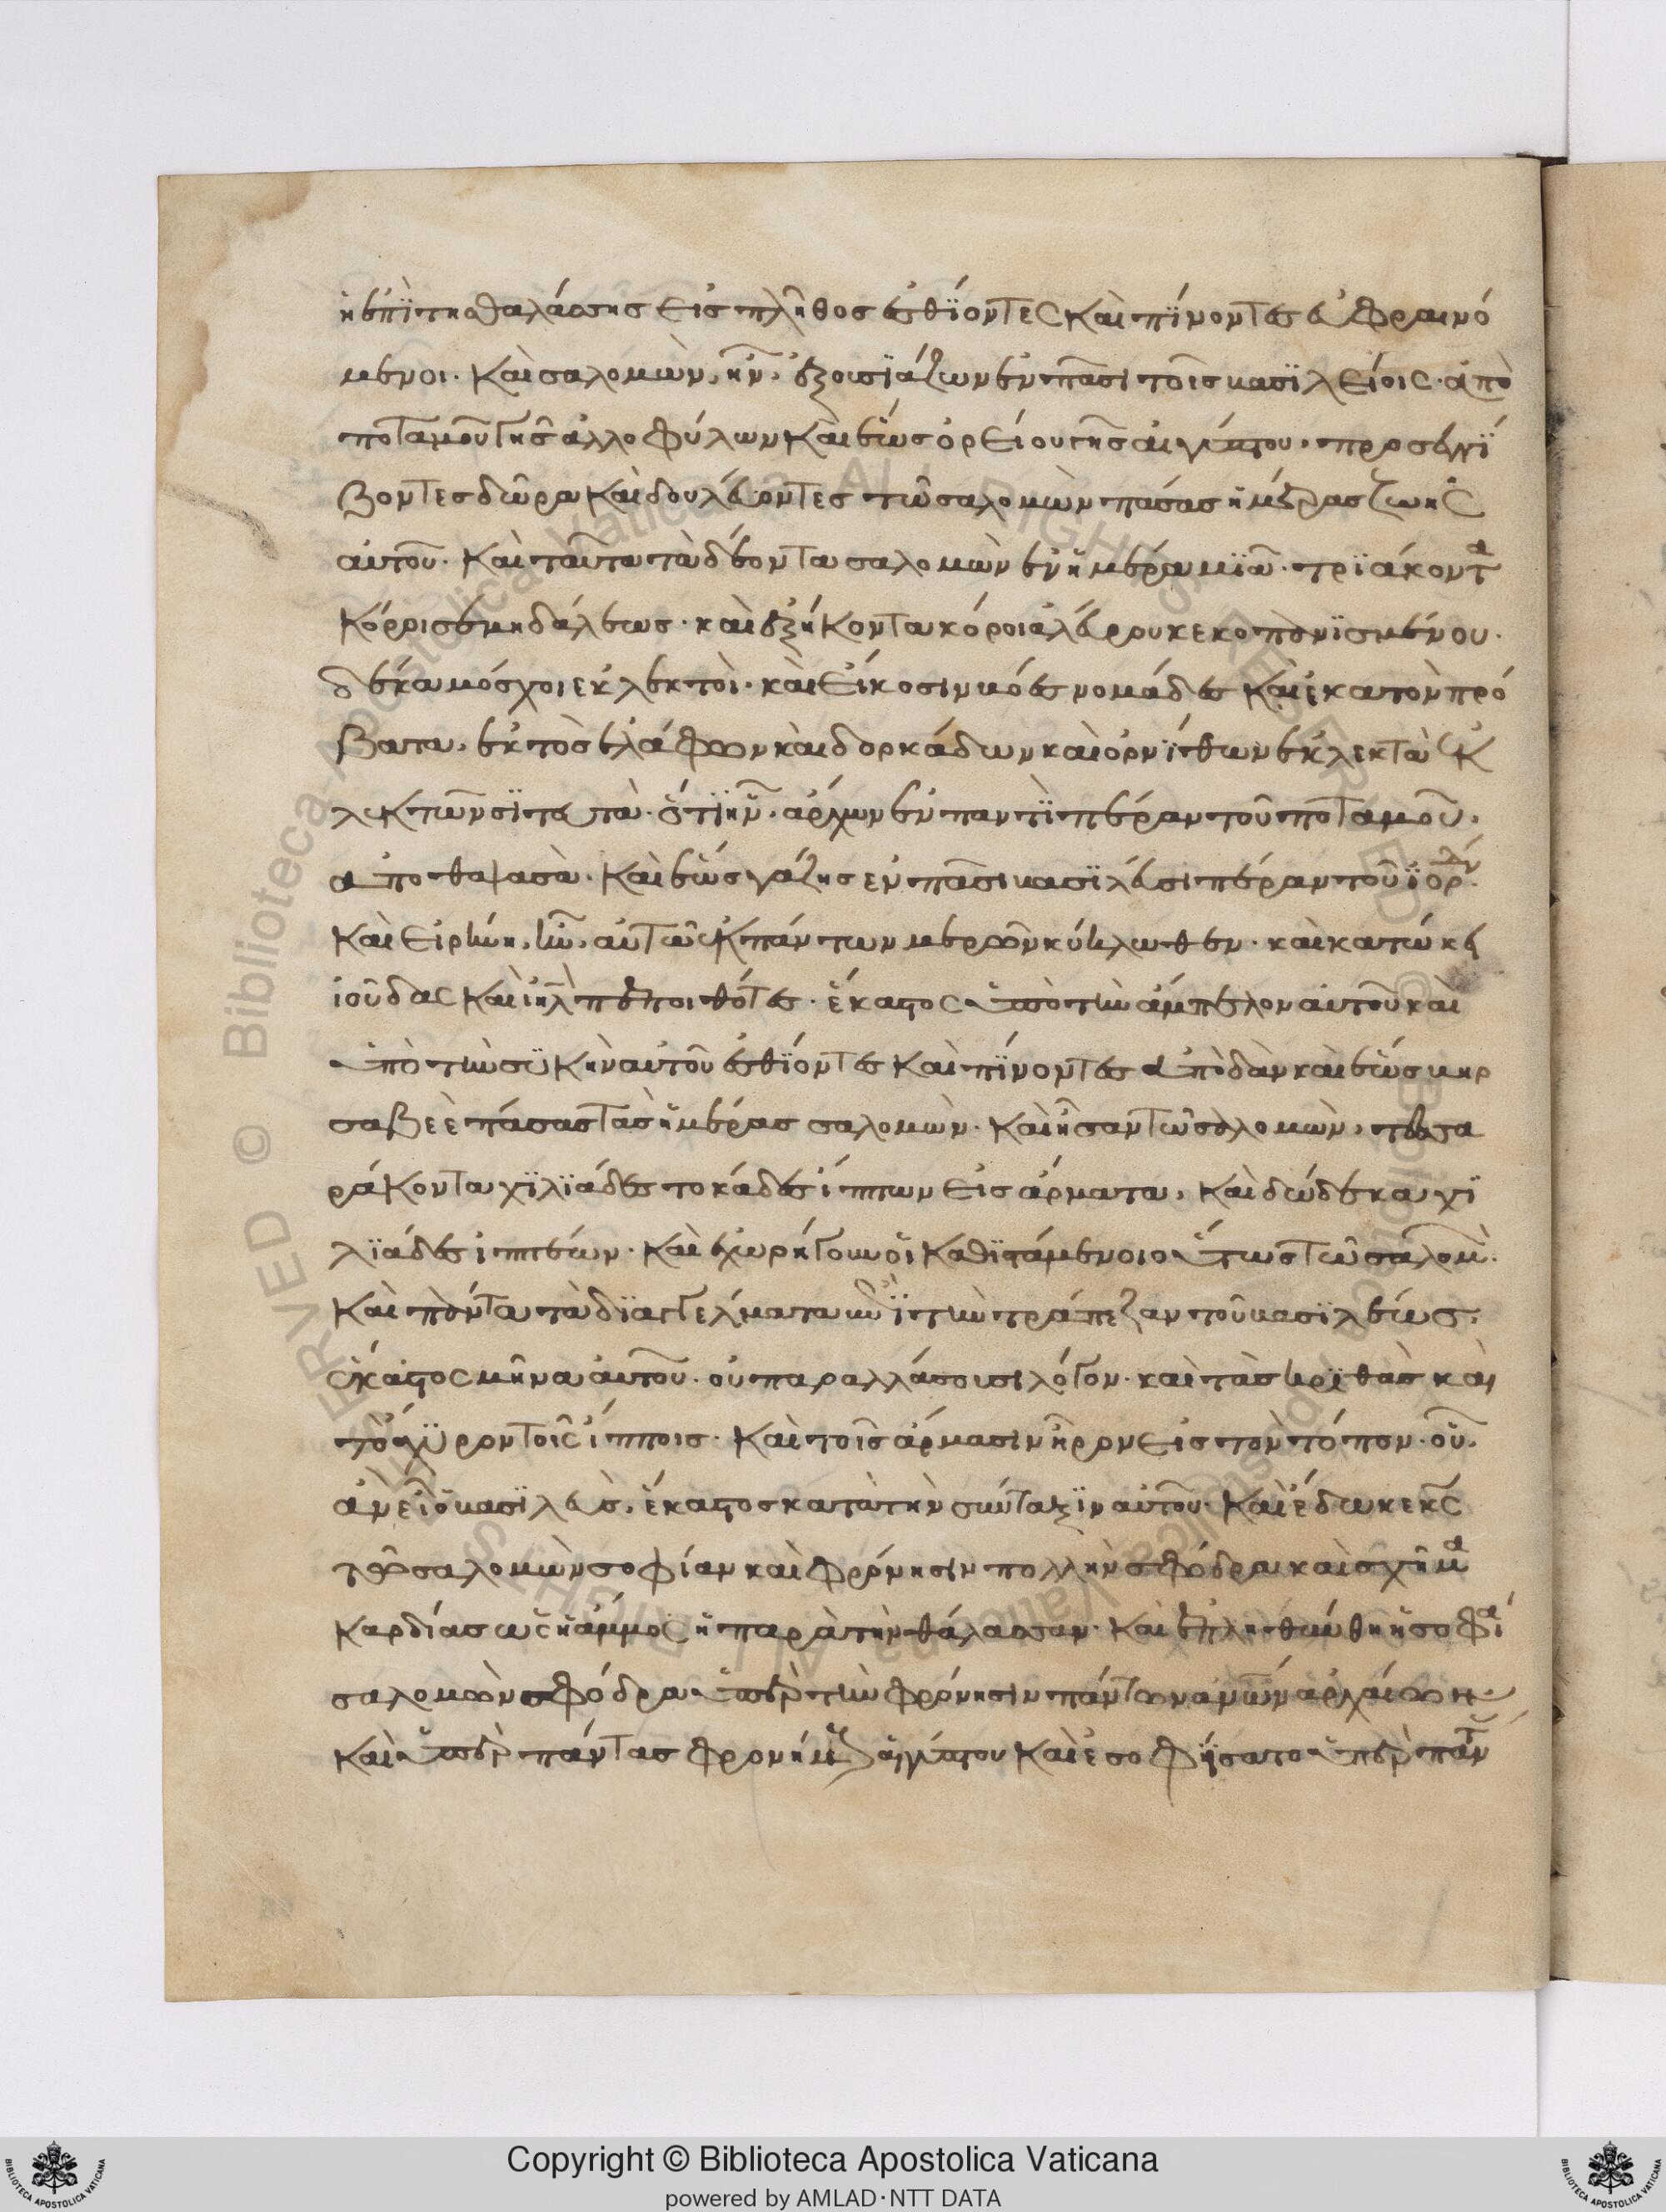 ἡ ἐπὶ τῆς θαλάσσης εἰς πλῆθος ἐσθίοντες καὶ πίνοντες εὐφραινό
μενοι. καὶ σαλομὼν, ἦν, ἐξουσιάζων ἐν πᾶσι τοῖς βασιλείοις. ἀπὸ
ποταμοῦ γῆς ἀλλοφύλων καὶ ἕως ὁρείου τῆς αἰγύπτου, προσεγγί
ζοντες δῶρα καὶ δουλεύοντες τῶ σαλομὼν πάσας ἡμέρας ζωῆς
αὐτοῦ. καὶ ταῦτα τὰ δέοντα σαλομὼν ἐν ἡμέρα μιᾶ. τριάκοντα
κόρρι σεμηδάλεως. καὶ ἑξήκοντα κόροι ἀλεύρου κεκοπανισμένου.
δέκα μόσχοι ἐκλεκτοὶ. καὶ εἴκοσιν βόες νομάδες καὶ ἑκατὸν πρό
βατα, ἐκτὸς ἐλάφων καὶ δορκάδων καὶ ὀρνίθων ἐκλεκτὰ ἐκ
λεκτῶν σιτευτὰ. ὅτι ἦν. ἄρχων ἐν παντὶ πέραν τοῦ ποταμοῦ.
ἀπο θαψασὰ. καὶ ἕως γάζης ἐν πᾶσι βασιλεῦσι πέραν τοῦ ἰορδάν.
καὶ εἰρήνη, ἦν, αὐτῶ ἐκ πάντων μερῶν κύκλωθεν. καὶ κατώκει
ἰούδας καὶ ιηλ πεποιθότες. ἕκαστος ὑπὸ τὴν ἄμπελον αὐτοῦ καὶ
ὑπὸ τὴν συκὴν αὐτοῦ ἐσθίοντες καὶ πίνοντες ἀπὸ δὰν καὶ ἕως βηρ
σαβεὲ πάσας τὰς ἡμέρας σαλομὼν. καὶ ἦσαν τῶ σολομὼν, τεσσα
ράκοντα χιλιάδες τοκάδες ἵππων εἰς ἅρματα, καὶ δώδεκα χι
λιάδες ἱππέων. καὶ ἐχωρήγουν οἱ καθιστάμενοι οὕτως τῶ σαλομ.
καὶ πάντα τὰ διαγγέλματα ἐπὶ τὴν τράπεζαν τοῦ βασιλέως.
ἕκαστος μῆνα αὐτοῦ. οὐ παραλλάσσουσι λόγον. καὶ τὰς κριθὰς καὶ
τὸ ἄχυρον τοῖς ἵπποις. καὶ τοῖς ἅρμασιν ἦρον εἰς τὸν τόπον. οὗ.
ἂν εἶ ὁ βασιλεὺς, ἕκαστος κατὰ τὴν σύνταξιν αὐτοῦ. καὶ ἔδωκε κς
τῶ σαλομὼν σοφίαν καὶ φρόνησιν πολλὴν σφόδρα καὶ σχῆμα
καρδίας ὡς ἡ ἄμμος ἡ παρὰ τὴν θάλασσαν. καὶ ἐπληθύνθη ἡ σοφία
σαλομὼν σφόδρα ὑπὲρ τὴν φρόνησιν πάντων ανων ἀρχαίων.
καὶ ὑπὲρ πάντας φρονήμους αἰγύπτου καὶ ἐσοφίσατο ὑπὲρ πάντ